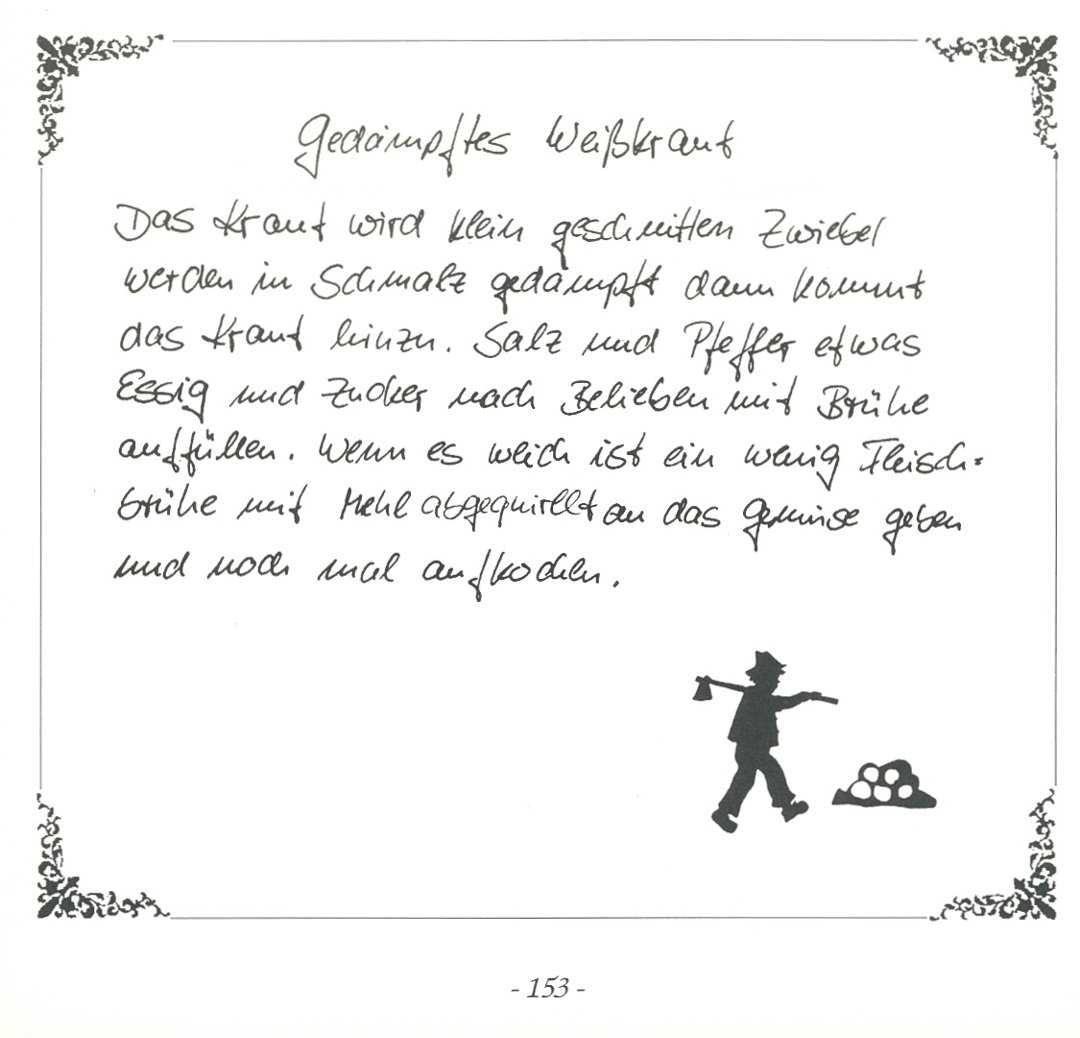 Gedämpftes Weißkraut
Das Kraut wird klein geschnitten Zwiebel
werden in Schmalz gedämpft dann kommt
das Kraut hinzu. Salz und Pfeffer etwas
Essig und Zucker nach Belieben mit Brühe
auffüllen. Wenn es weich ist ein wenig Fleisch=
brühe mit Mehl abgequirllt an das Gemüse geben
und noch mal aufkochen.
- 153 -